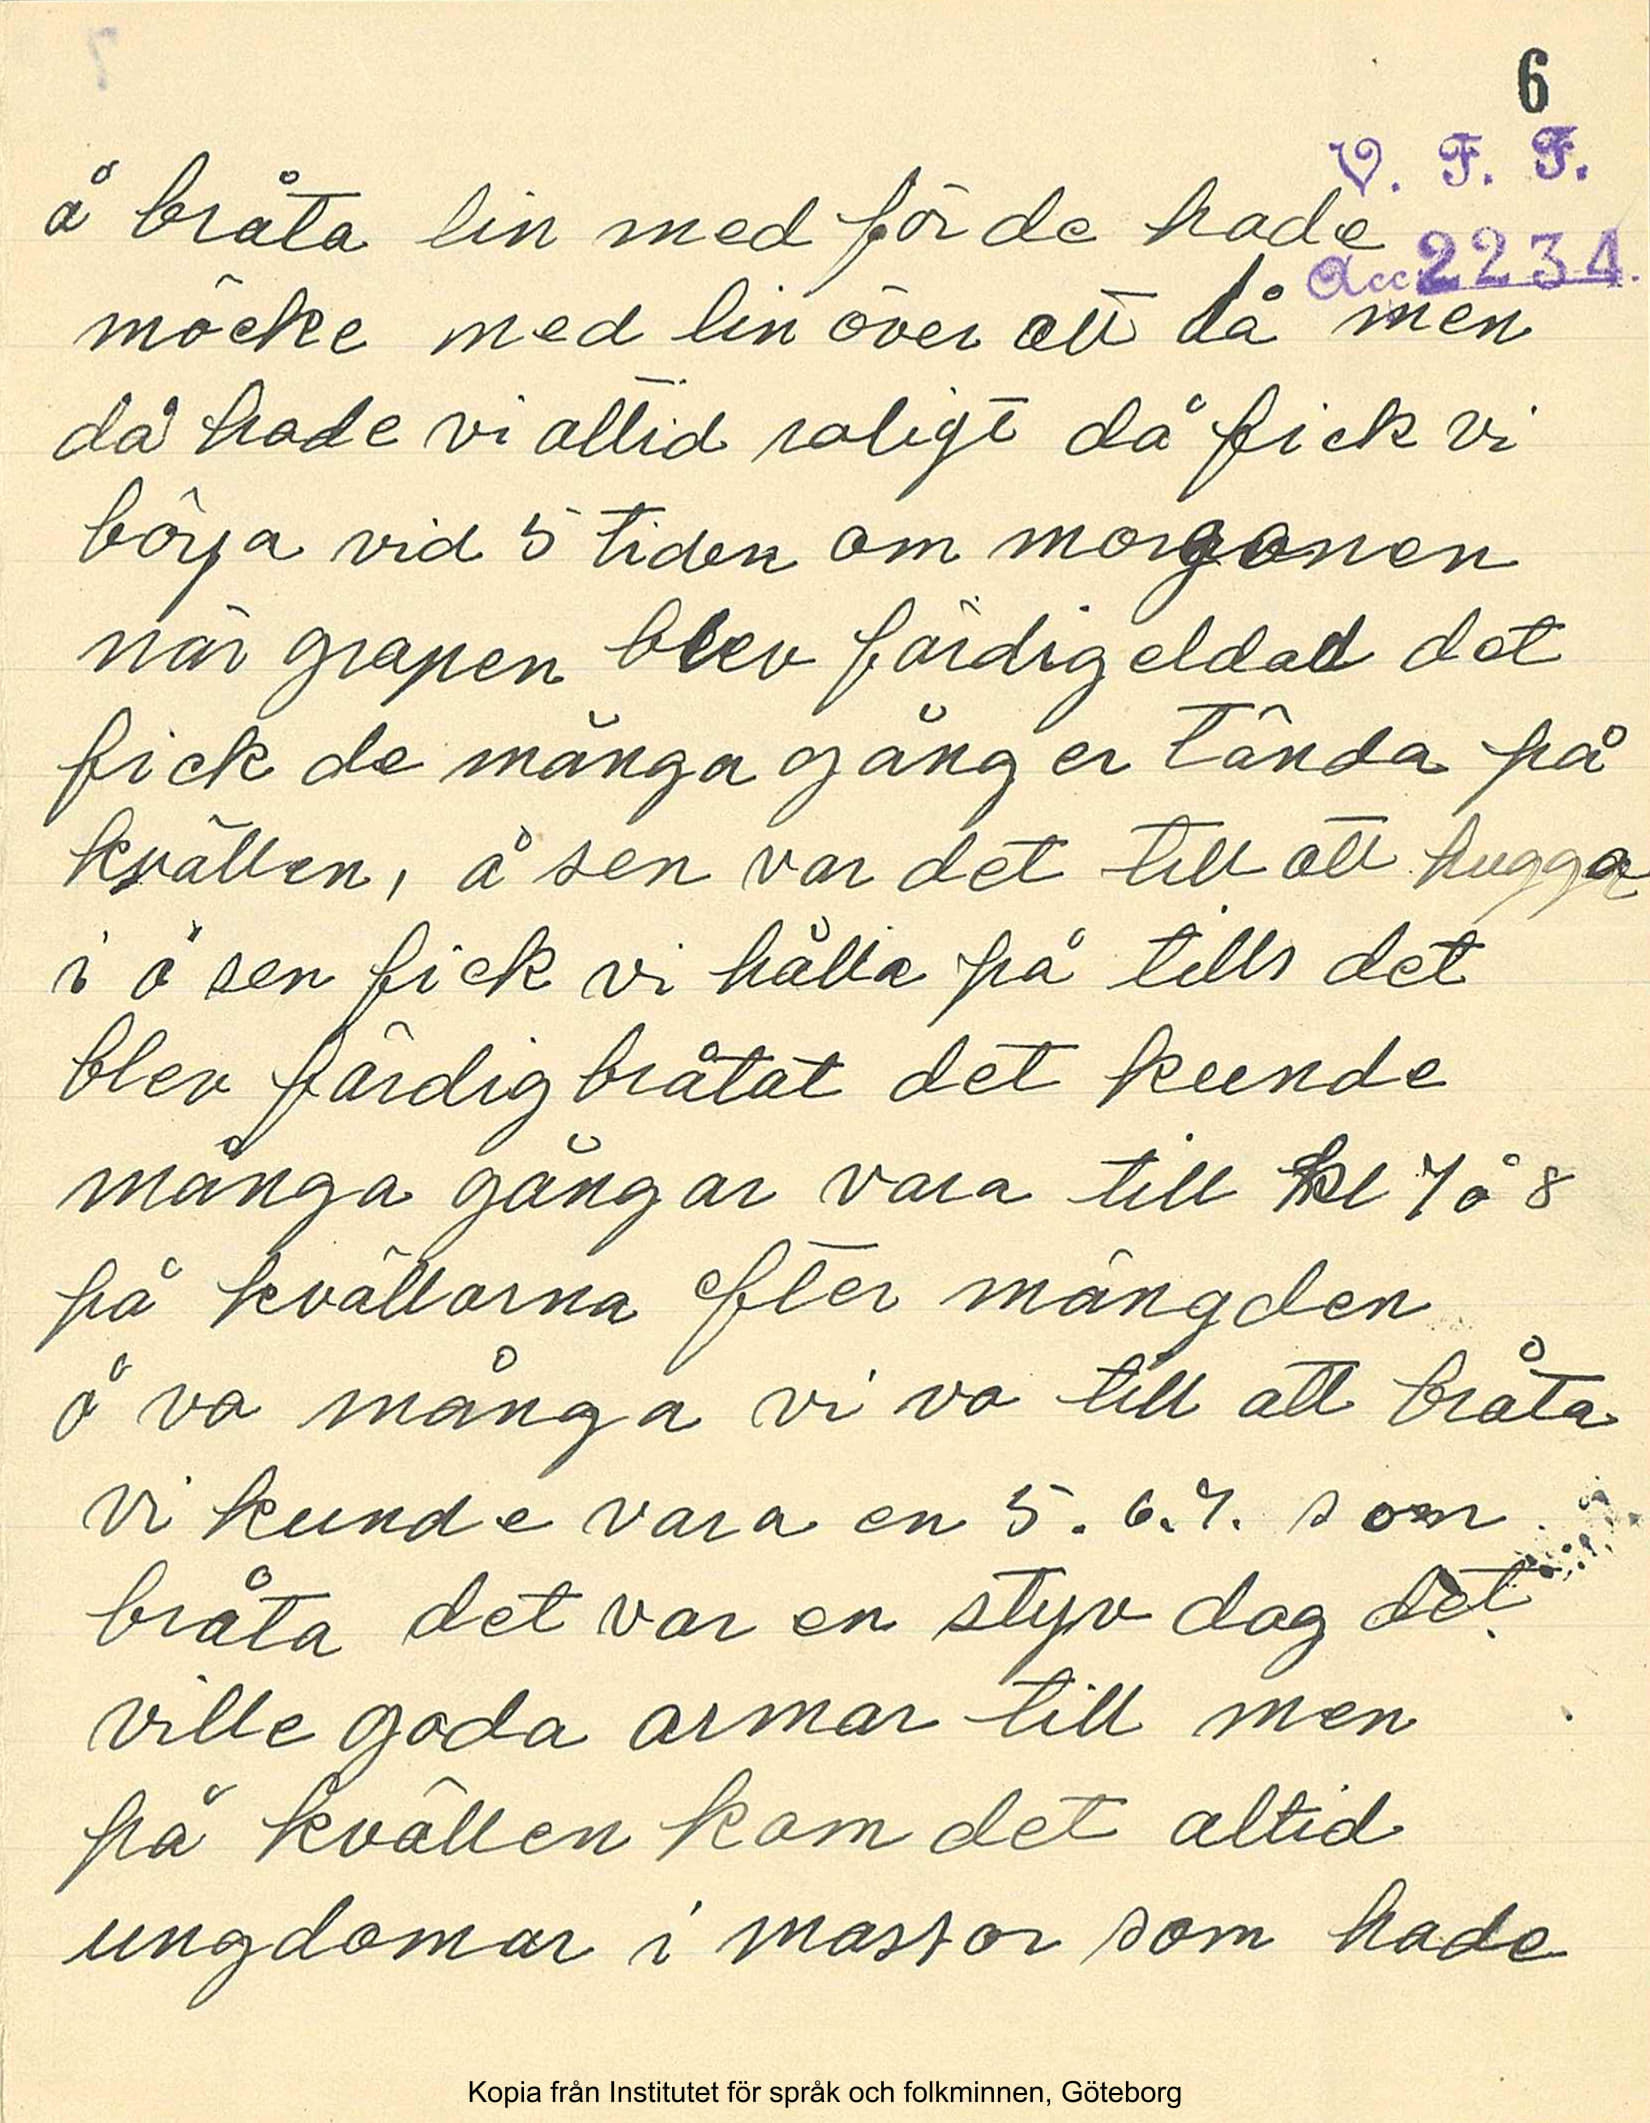 6
V. F. F.
å bråta lin med för de hade
Acc 2234.
möcke med lin över att då men
då hade vi alltid roligt då fick vi
börja vid 5 tiden om morgonen
när gropen blev färdigeldad det
fick de många gånger tända på
kvällen, å sen var det till att hugga
i å sen fick vi hålla på tills det
blev färdigbråtat det kunde
många gångar vara till kl 7 å 8
på kvällarna efter mängden
å va många vi va till att bråta
vi kunde vara en 5. 6. 7. som
bråta det var en styv dag det
ville goda armar till men
på kvällen kom det altid
ungdomar i massor som hade
Kopia från Institutet för språk och folkminnen, Göteborg